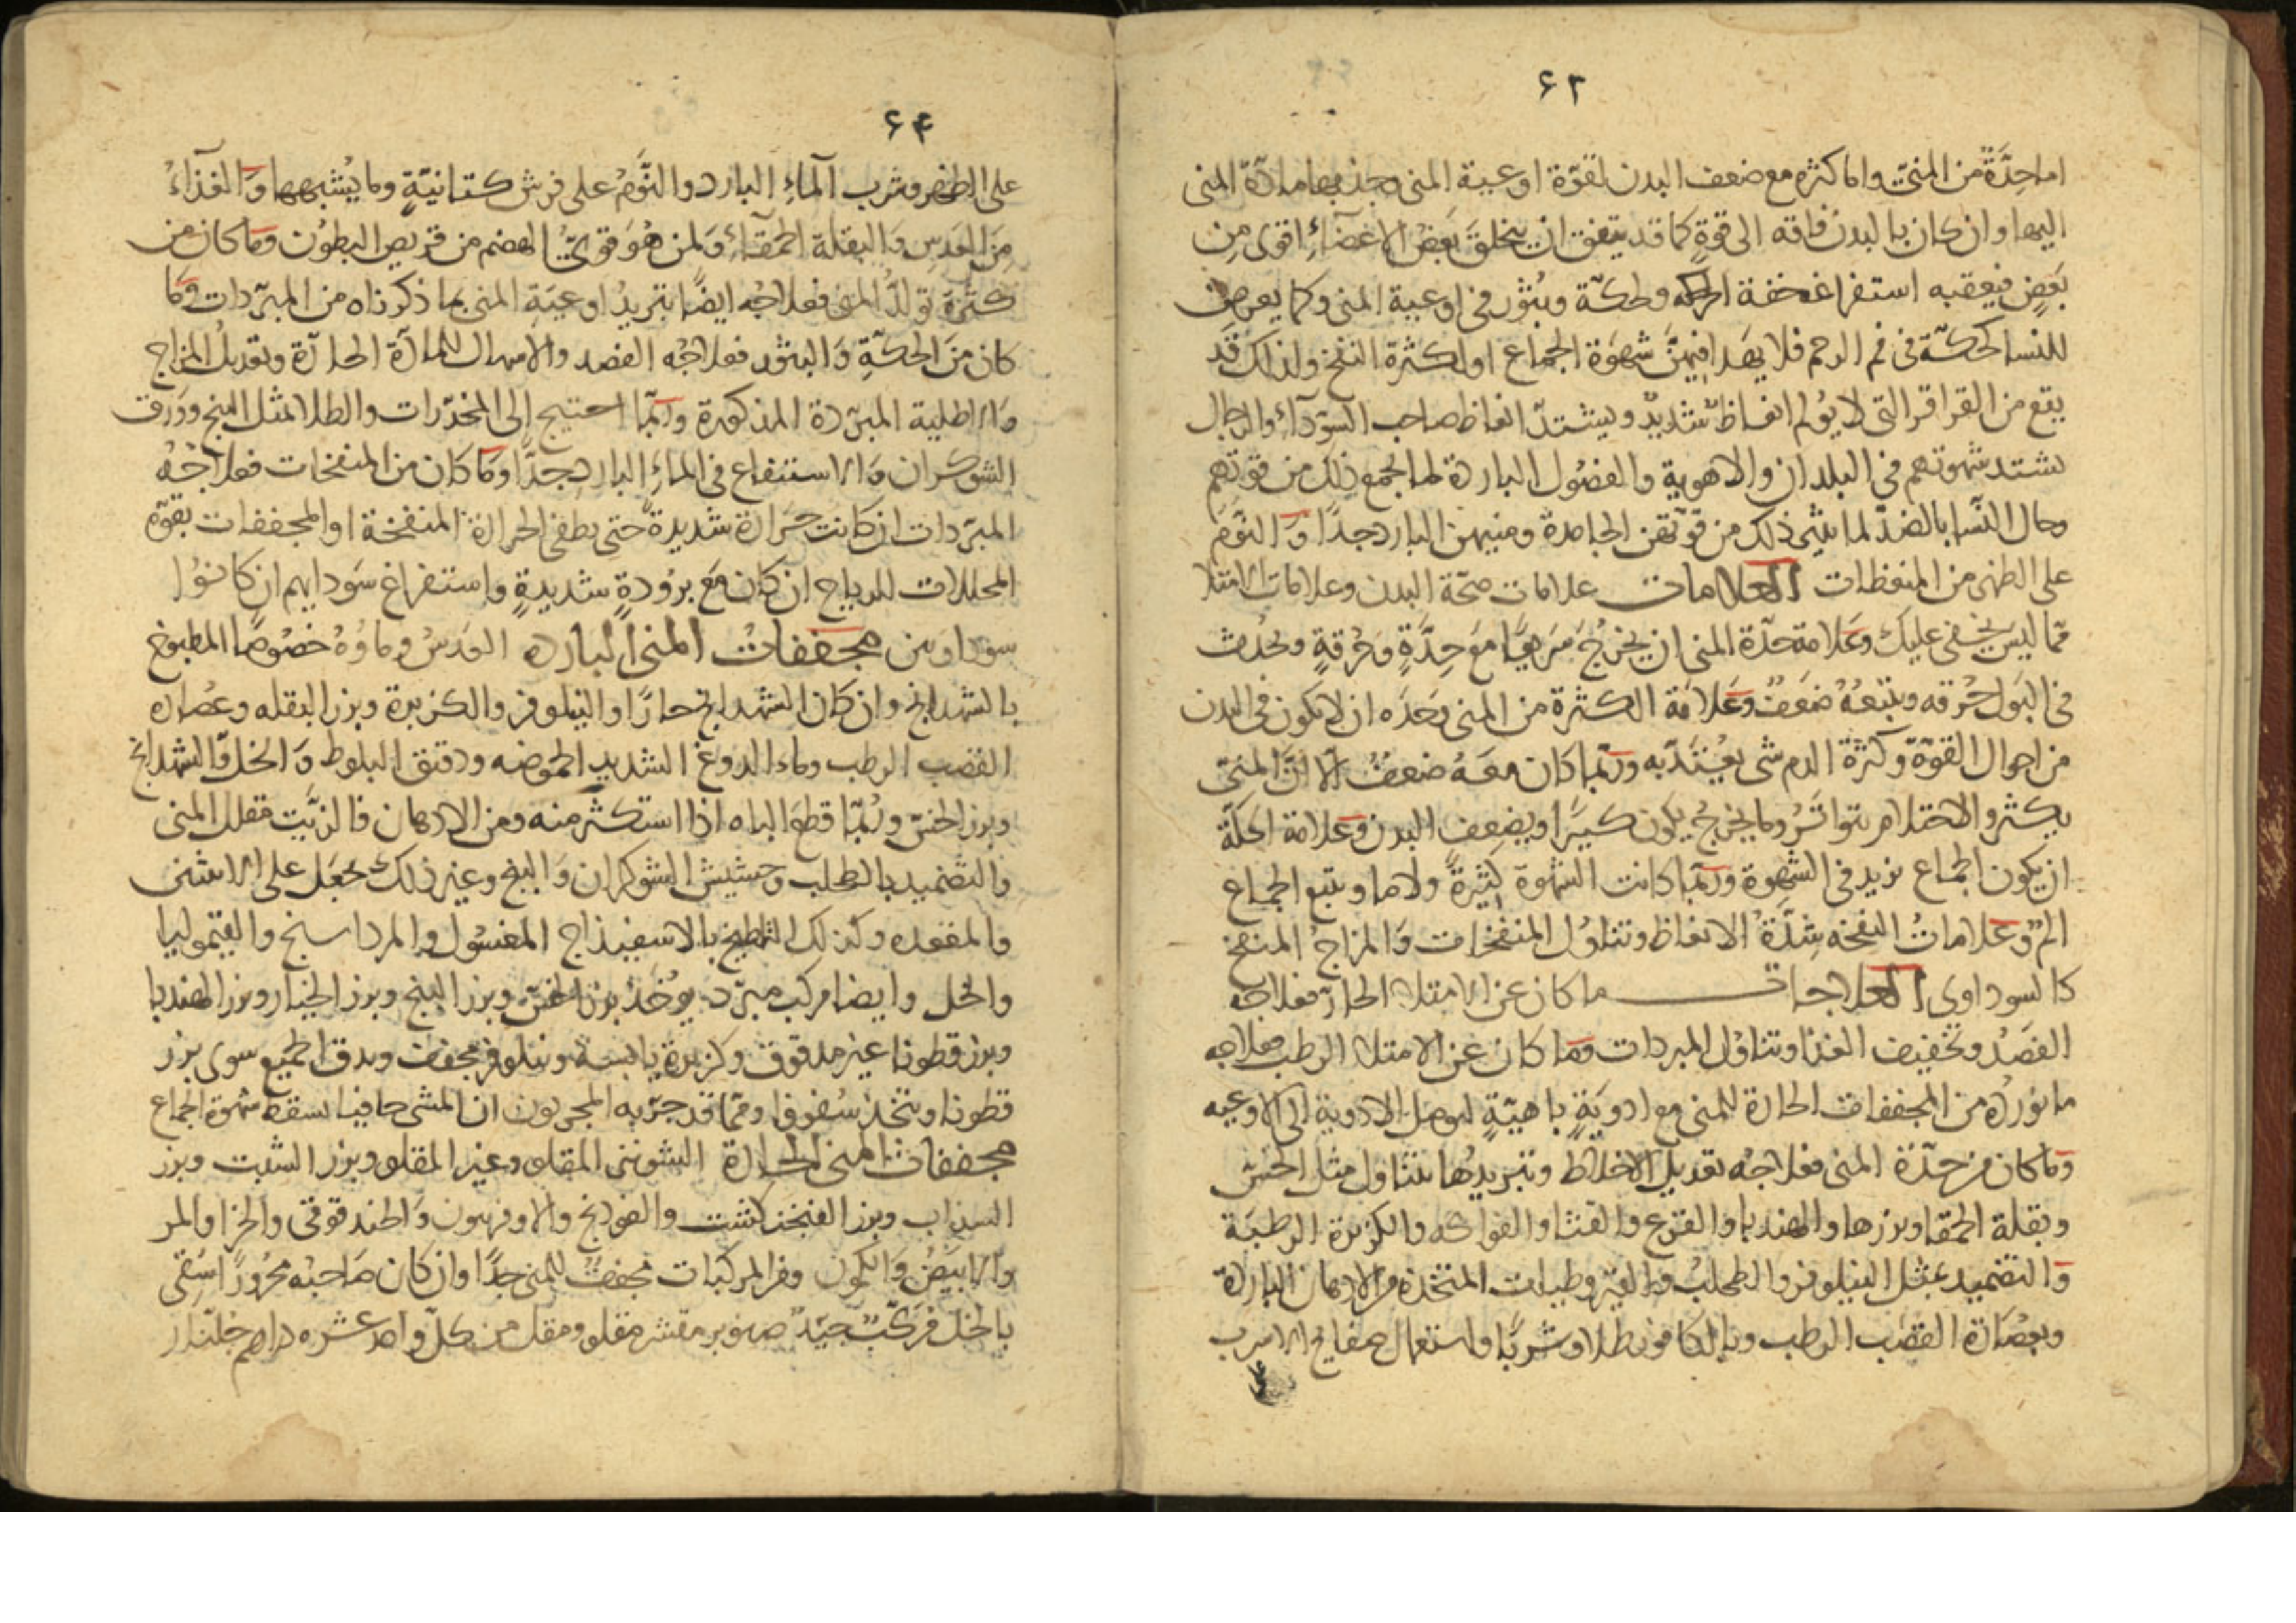 ۶۳
اما حِدَّةً من المنىّ واما كثره مع ضعف البدن لقوّة اوعية المنى وجذبها مادّة المنى
اليها وان كان بالبدن فاقه الى قوةٍ كما قد يتفق ان يخلق بَعضُ الاعضآءِ اقوى مِن
بَعضٍ فيعقبه استفراغ خفة او لحكه وحكّة وبُثُور فى اوعية المنى وكما يعرض
للنسا لحكّة فى فم الرحم فلا يهدا فيهنَّ شهوَة الجماع اولكثرة النفخ ولذلك قد
يقع من القراقر التى لا يؤلم انعاظ شديدٌ ويشتدّ انعاظ صاحب السّودآءِ والرجال
يشتد شهوتهم فى البلدان والاهوية والفصُول الباردة لما الجمع ذلك من قوتهم
وحال النّسا بالضدّ لما يثير ذلك من قوّتهن الجامدة ومنيهن البارد جدًا وَ النوَم
على الظهر من المنعظات العلامات علامات صحّة البدن وعلامات الامتلا
ممّا ليسَ يخفى عليك وعَلامة حدّة المنى ان يخرُجُ سَريعًا مع حِدَّةٍ وَحُرقةٍ ويحُدث
فى البَول حُرقه ويتبعهُ ضَعفٌ وعَلامة الكثرة من المنى وَحدَه ان لا يكون فى البدن
من احوال القوّة وكثرة الدم شى يُعْتَدّ به وربّما كان معَهُ ضعفٌ الا انَّ المنىّ
يكثر والاحتلام يتواتَرُ وما يخرجُ يكون كثيرًا ويضعف البدن وعَلامة الحكّة
ان يكون الجماع يزيد فى الشهوة وربّما كانت الشهوة كثيرةً ولا ما ويتبع الجماع
المٌ وعَلاماتُ النفخه شِدَّةُ الانعاظ وتناوُل المنفخات وَالمزاجُ المنفخ
كالسوداوى العلاجات ما كان عن الامتلا الحارّ فعلاجه
الفَصدُ وتخفيف الغذا وتناوُل المبردات وَمَا كان عن الامتلا الرطب فعلاجه
ما نورده من المجففات الحارة للمنى مع ادويَةٍ باهيّةٍ ليوصل الادوية الى الاوعيه
وَما كان من حِدّة المنى فعلاجُه تعديل الاخلاط وتبريدُها بتناول مثل الخسّ
وبقلة الحمقا وبزرها والهندبا والقرع والقثا والفواكه والكزبرة الرطبَة
وَالتضميد بمثل النيلوفر والطحلب والقيروطيات المتخذة من الادهان الباردة
وبعُصَارة القصَب الرطب وبالكافور طلا وشربًا واستعمال صفايح الاسرب
۶۴
على الظهر وشرب المآءِ البارد والنَّومُ على فرش كتانيّةٍ وما يُشبهها وَالغذآءُ
مِنَ العدَسِ وَالبقلة الحمقآءِ وَلمن هُوَ قوىُّ الهضم من قريص البطُون وَمَا كان من
كثرَة تولّد المنى فعلاجُه ايضًا بتريدُ اوعيَة المنى بما ذكرناه من المبرّدات وَمَا
كان مَن الحكّةِ وَالبثور فعلاجُه الفصد والاسهال للمادّة الحارّة وتعديلُ المزاج
وَالاطلية المبرّدة المذكورة وربّما احتيج الى المخدّرات والطلا بمثل البنج وورق
الشوكران وَالاستنقاع فى الماءِ البارد جدًّا وَمَا كان من المنفخات فعلاجُه
المبرّدات ان كانت حَرارة شديدةً حتى يطفى الحرارة المنفخة او المجففات بقوّة
المحللات للرياح ان كان مَع برُودةٍ شديدةٍ واستفراغ سَودايهم ان كانوُا
سوداوين مجففاتُ المنى الباردة العَدسُ وماؤهُ خصُوصًا المطبوخ
بالشهدانج وان كان الشهدانج حارًا والنيلوفر والكزبرة وبزر البقله وعصاره
القصب الرطب وماء الدوغ الشديد الحموضه ودقيق البلوط وَالخلّ والشهدانج
وبزر الخسّ ورُبّما قطع الباه اذا استكثر منه ومن الادهان فالزَيت مقلل المنى
والتضميد بالطحلب وحشيش الشوكران وَالبنج وغير ذلك يجعَل على الانثيين
والمقعده وكذلك التلطيخ بالاسفيذاج المغسُول والمرداسنج والقيموليا
والخل وايضا مركب مبرّد يوُخَذُ بزر الخسّ وبزر البنج وبزر الخيار وبزر الهندبا
وبزر قطونا غير مدقوق وكزبرة يابسة ونيلوفر مجفف ويدق الجميع سوى بزر
قطونا ويتخذ سُفوفا وممّا قد جرّبه المجربون ان المشى حافيا يسقط شهوة الجماع
مجففات المنى الحارة الشونيز المقلو وغير المقلو وبزر الشبت وبزر
السذاب وبزر الفنجنكشت والفودنج والاوفربيون وَالحندقوقى والحزا والمر
والابيَضُ وَالكمون ومن المركبات مجففٌ للمنى جدًّا وان كان صَاحبُه محرُورًا سَقى
بالخل مركّبٌ جيّدٌ صنوبر مقشر مقلو ومقل من كلّ واحد عشره دراهم جلنار